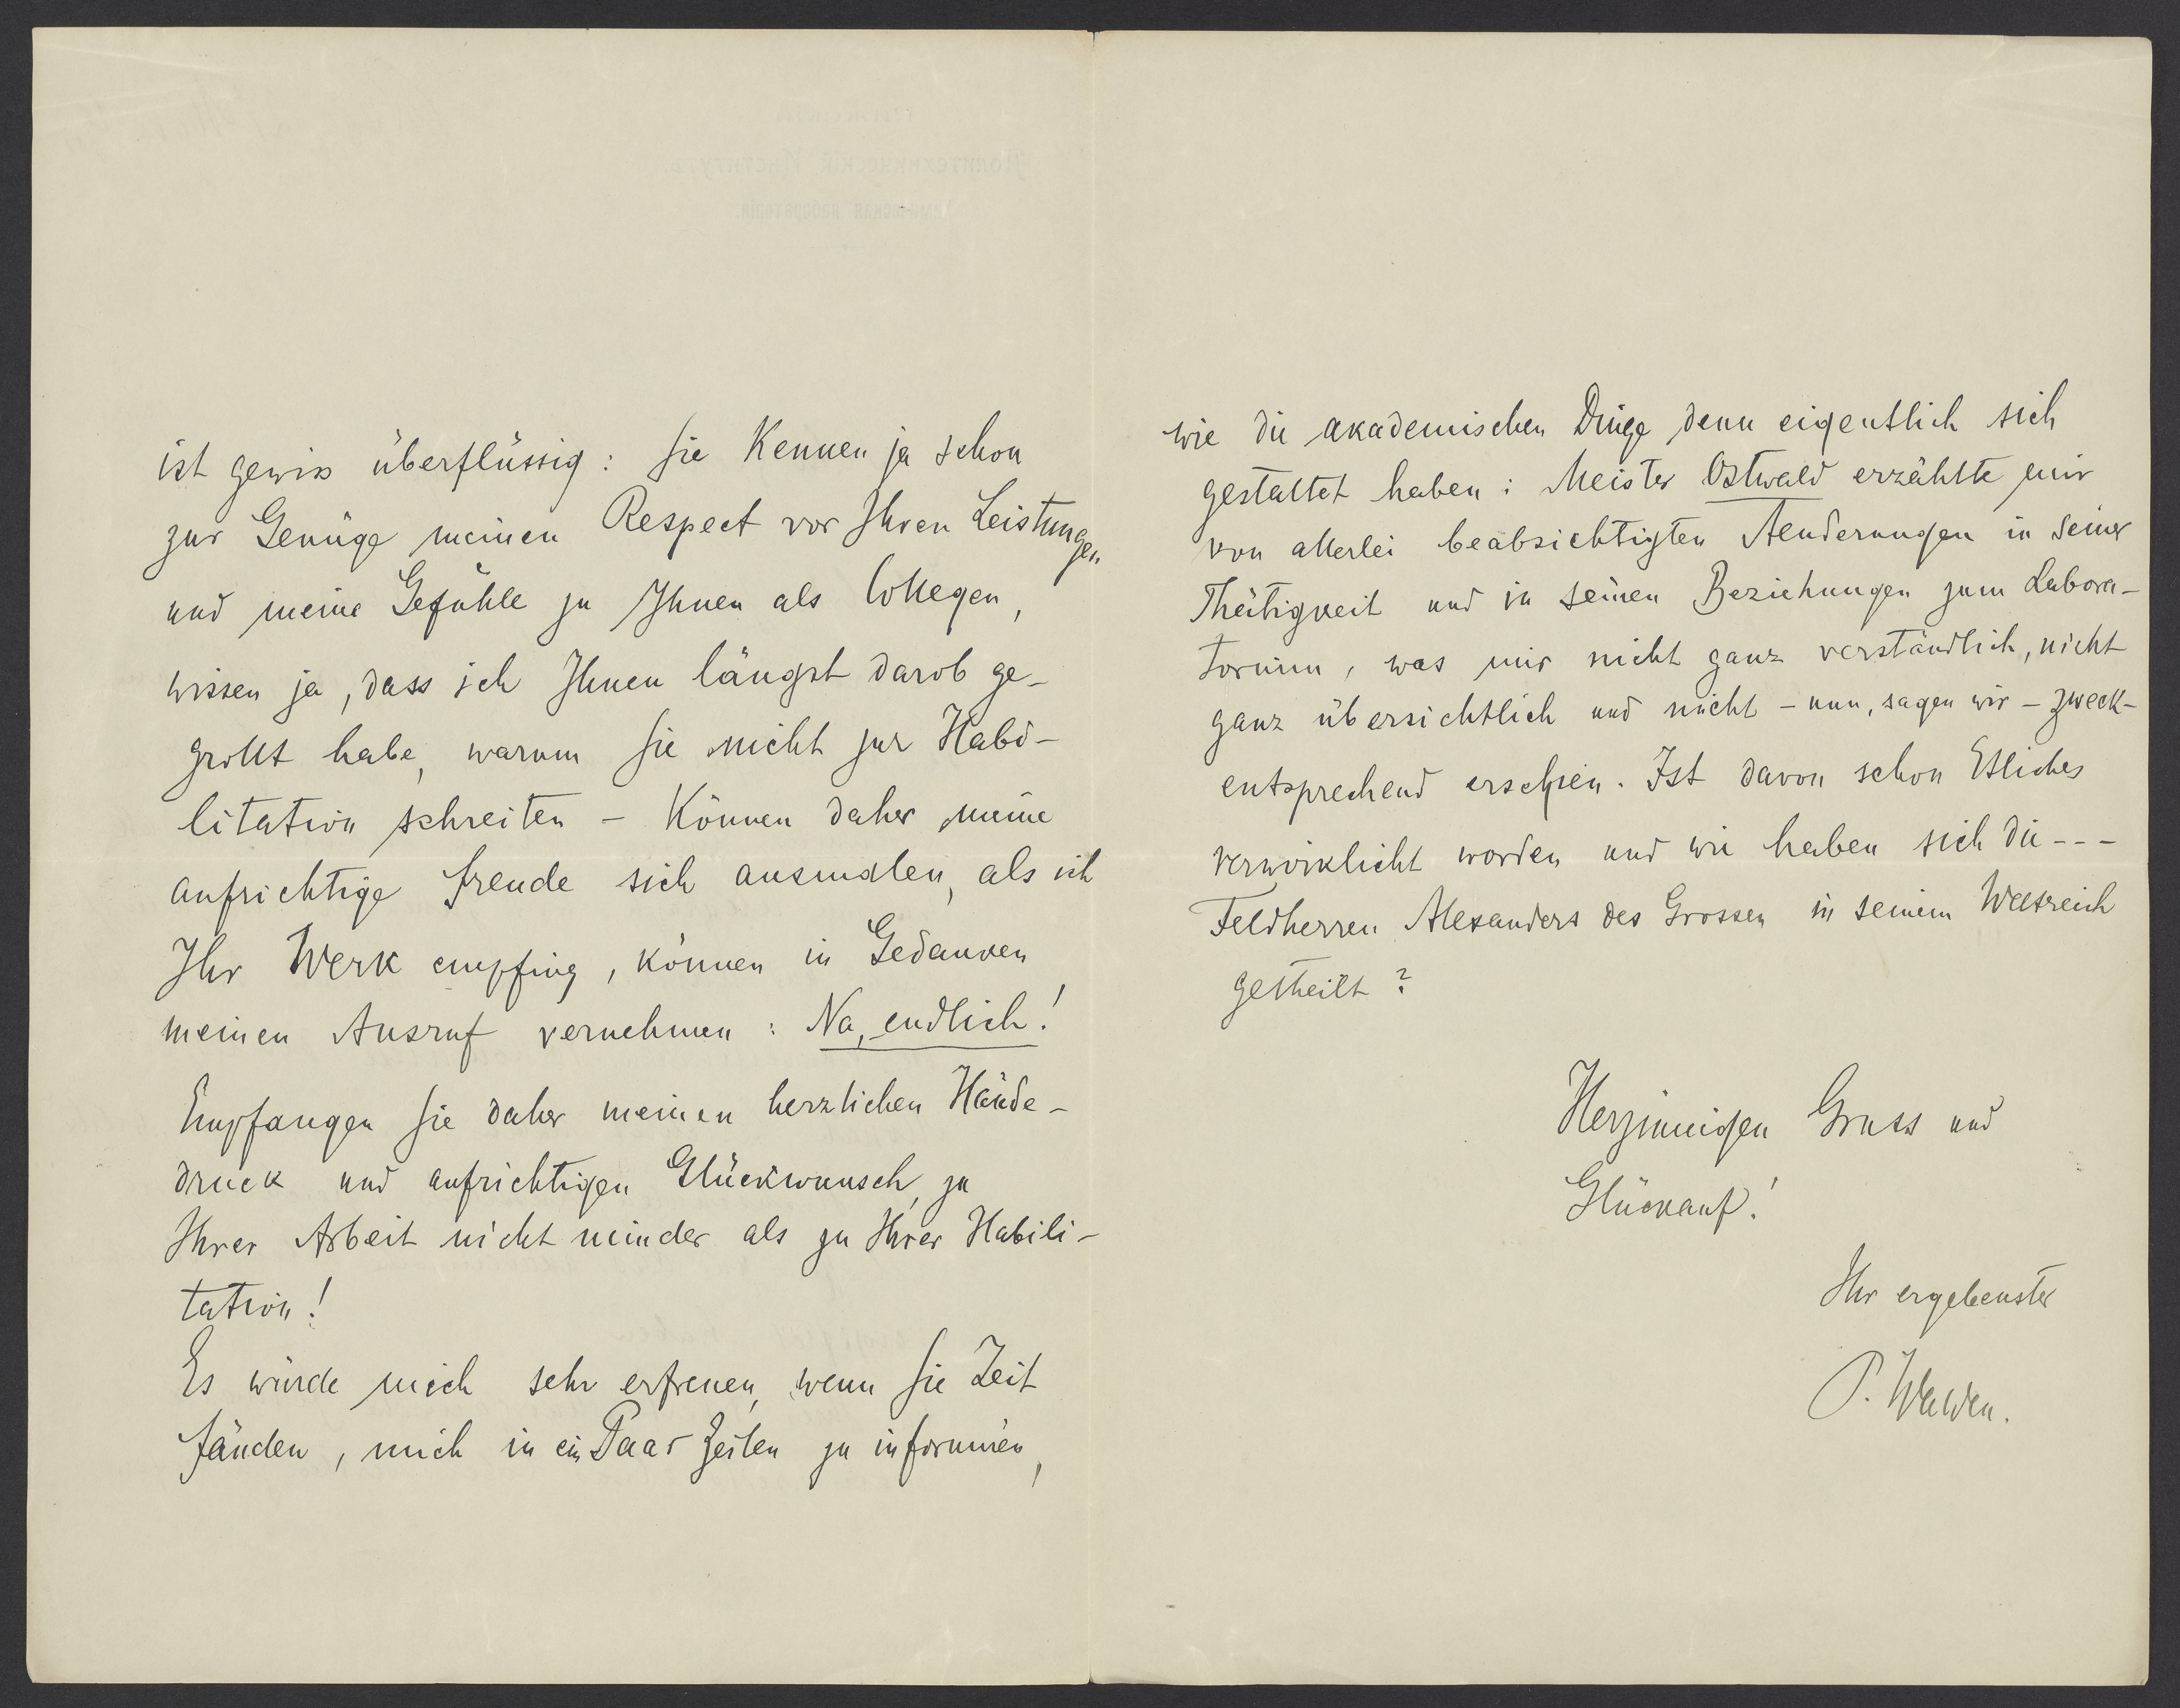 ist gewiss überflüssig: Sie Kennen ja schon
zur Genüge meinen Respect vor Ihren Leistungen
und meine Gefühle zu Ihnen als Collegen,
wissen ja, dass ich Ihnen längst darob ge-
grollt habe, warum Sie nicht zur Habi-
litation schreiten – Können daher meine
aufrichtige Freude sich ausmalen, als ich
Ihr Werk empfing, können in Gedanken
meinen Ausruf vernehmen: Na, endlich!
Empfangen Sie daher meinen herzlichen Hände-
druck und aufrichtigen Glückwunsch, zu
Ihrer Arbeit nicht minder als zu Ihrer Habili-
tation!
Es würde mich sehr erfreuen, wenn Sie Zeit
fänden, mich in ein Paar Zeilen zu informiren,
wie die akademischen Dinge denn eigentlich sich
gestaltet haben: Meister Ostwald erzählte mir
von allerlei beabsichtigten Aenderungen in seiner
Thätigkeit und in seinen Beziehungen zum Labora-
torium, was mir nicht ganz verständlich, nicht
ganz übersichtlich und nicht – nun, sagen wir – zweck-
entsprechend erschien. Ist davon schon Etliches
verwirklicht worden und wie haben sich die - - -
Feldherren Alexanders des Grossen in seinem Weltreich
getheilt?
Herzinnigen Gruss und
Glückauf!
Ihr ergebenster
P. Walden.